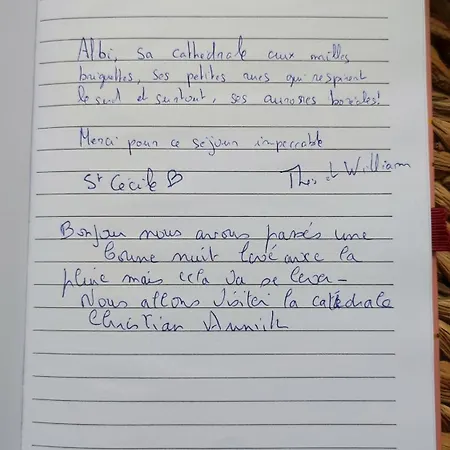 Albi, sa cathédrale aux milles
briquettes, ses petites rues qui respirent
le sud et surtout, ses aurores boréales!
Merci pour ce séjour impeccable
St Cécile ♡ et William
Bonjour nous avons passés une
bonne nuit levé avec la
pluie mais cela va se lever -
Nous allons visiter la catédrale
Christian Annick